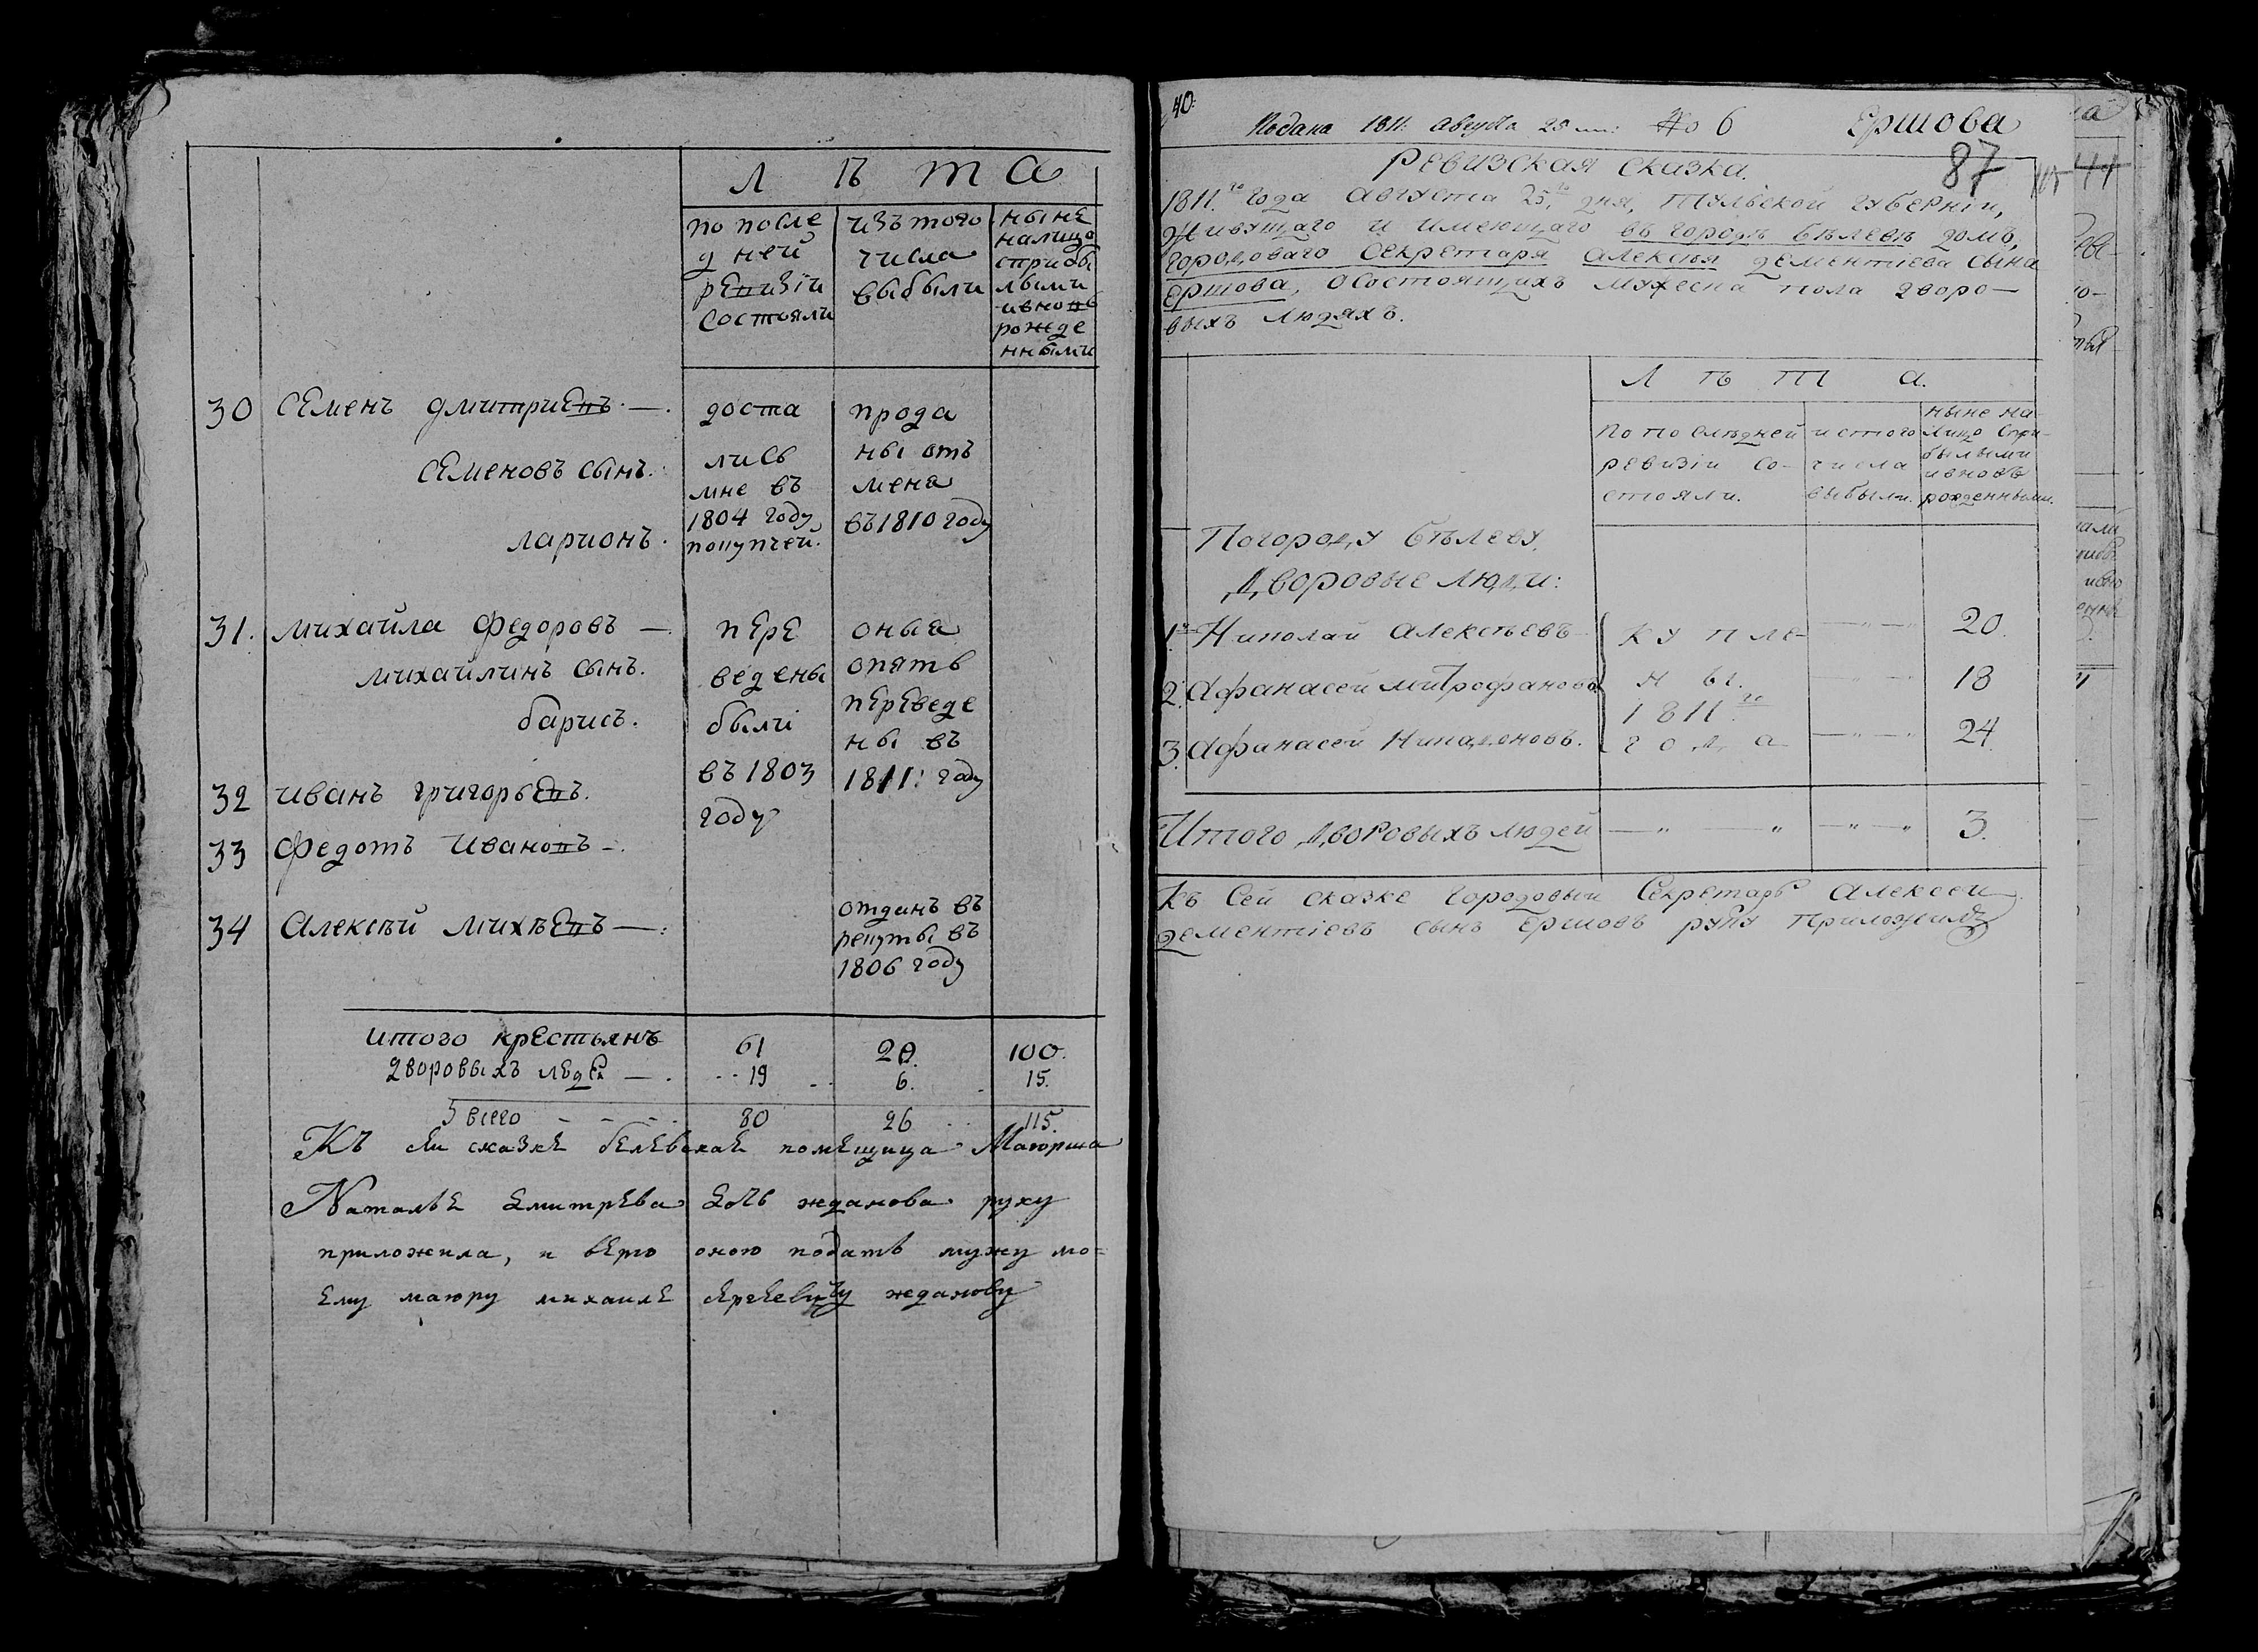 Л Ѣ т а
по после
дней
ревизіи
состояли
изъ того
числа
выбыли
ныне
налицо
сприбы
лыми
ивновь
рожде
нными
30 семенъ дмитриевъ. —.
семеновъ сынъ.
ларионъ.
доста
лись
мне въ
1804 году
покупкеи.
прода
ны отъ
мена
въ 1810 году
31. михайла федоровъ —.
михаилинъ сынъ.
барисъ.
32 иванъ григорьевъ.
33 федотъ ивановъ —.
пере
ведены
были
въ 1803
году
оныя
опять
переведе
ны въ
1811: году
34 Алексѣй михѣевъ —:
отданъ въ
рекруты въ
1806 году
итого крестьянъ 61 20. 100.
дворовыхъ людей —. 19 6. 15.
всего 80 26 115.
Къ сеи сказке белевская помещица Маиорша
Наталье дмитрева дочь жданова руку
приложила, и верю оною подать мужу мо=
ему маиору михаиле сергеевичу жданову
40.
Подана 1811: августа 25 № 6 Ершова
87
Ревизская сказка.
1811.го года Августа 25.го дня, тульской губерніи,
живущаго и имеющаго въ городѣ бѣлевѣ домъ,
городоваго секретаря Алексѣя дементіева сына
ершова, осостоящихъ мужеска пола дворо—
выхъ людяхъ.
Л ѣ т а.
по последней
ревизіи со-
стояли.
истого
числа
выбыли.
ныне на-
лицо спри-
былыми
ивновь
рожденными.
Погороду бѣлеву.
Дворовые люди:
1.й Николай Алексѣевъ 20.
2. Афанасей митрофановъ 18
3. Афанасей Никаноновъ. 24.
купле-
ны.
1811го
года
Итого дворовыхъ людей — „ — „ — „ — „ 3.
Къ сей сказке городовыи секретарь Алексеи
дементіевъ сынъ ершовъ руку приложилъ